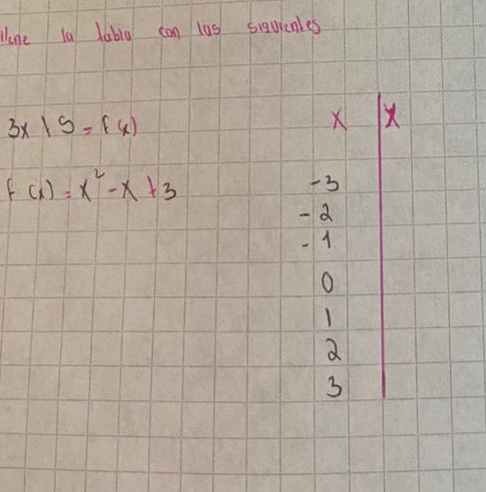 llene la tabla con los siguientes
3x + 5 = f(x)
f(x) = x² - x + 3
x | x
-3
-2
-1
0
1
2
3